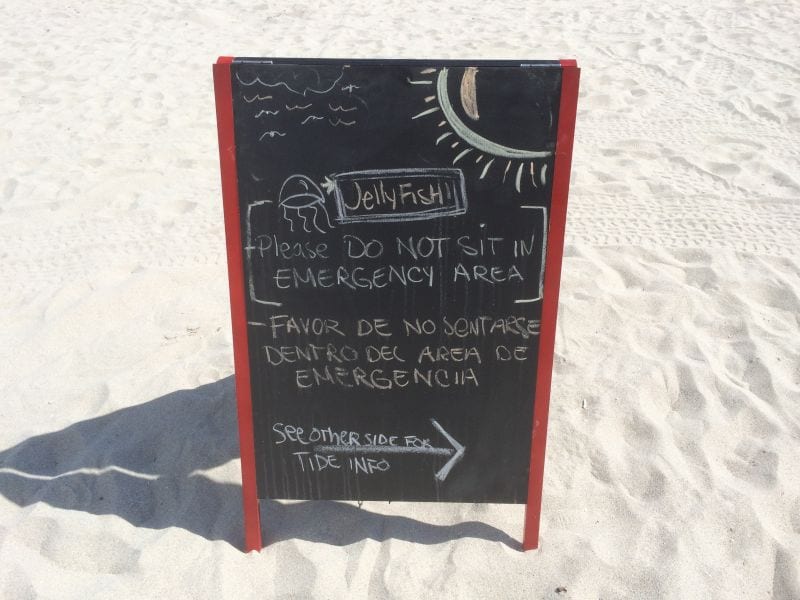 JellyFish!!
-Please DO NOT SIT IN
EMERGENCY AREA
- FAVOR DE NO SENTARSE
DENTRO DEL AREA DE
EMERGENCIA
See other side for
TIDE INFO